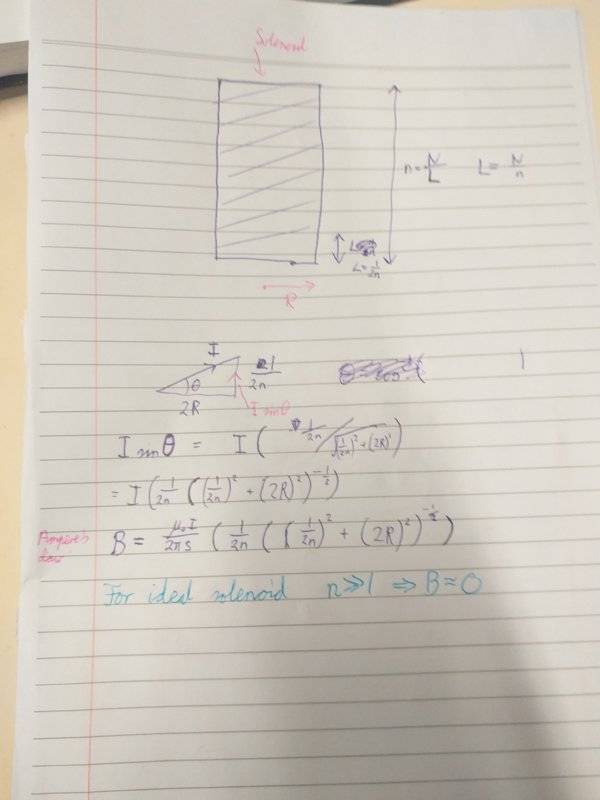 Solenoid
n = N/L   L = N/n
L = 1/2n
R
I
θ
1/2n
2R
I sinθ
I sinθ = I ( 1/2n / √((1/2n)² + (2R)²) )
= I ( 1/2n ( (1/2n)² + (2R)² )^(-1/2) )
Ampere's Law
B = μ₀I/2πs ( 1/2n ( ( 1/2n )² + (2R)² )^(-1/2) )
For ideal solenoid   n ≫ 1 ⇒ B ≈ 0